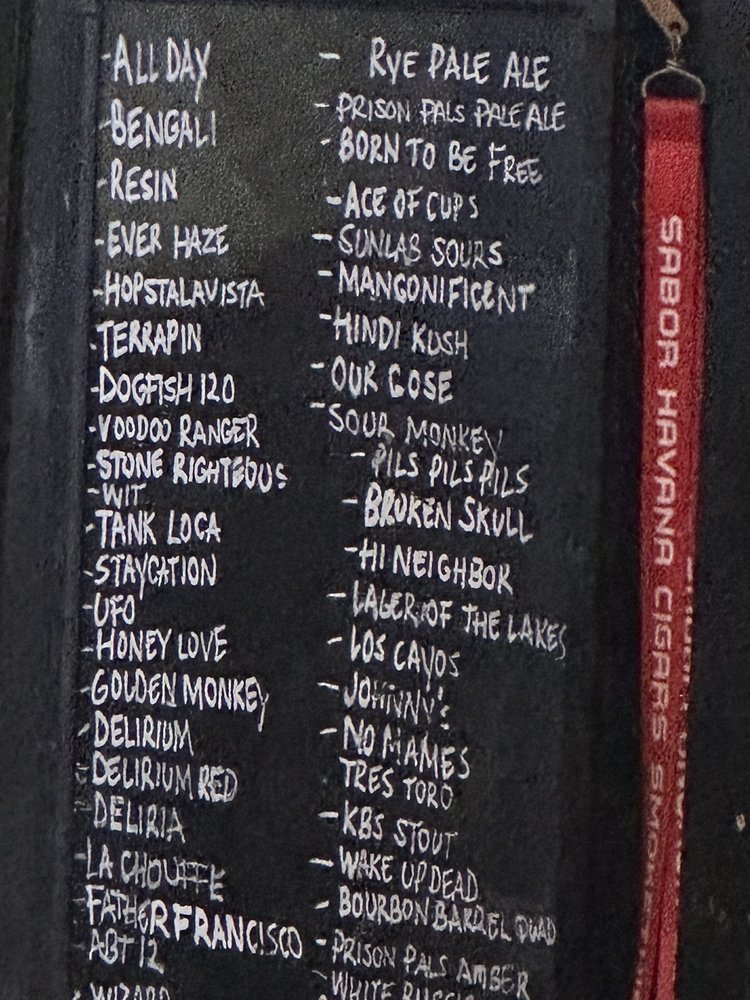 -ALL DAY
-BENGALI
-RESIN
-EVER HAZE
-HOPSTALAVISTA
-TERRAPIN
-DOGFISH 120
-VOODOO RANGER
-STONE RIGHTEOUS
-WIT
-TANK LOCA
-STAYCATION
-UFO
-HONEY LOVE
-GOLDEN MONKEY
-DELIRIUM
DELIRIUM RED
-DELIRIA
-LA CHOUFFE
-FATHER FRANCISCO
-ABT 12
-WIZARD
- RYE PALE ALE
-PRISON PALS PALE ALE
-BORN TO BE FREE
-ACE OF CUPS
-SUNLAB SOURS
-MANGONIFICENT
-HINDI KUSH
-OUR GOSE
-SOUR MONKEY
-PILS PILS PILS
-BROKEN SKULL
-HI NEIGHBOR
-LAGER OF THE LAKES
-LOS CAYOS
-JOHNNY'S
-NO MAMES
TRES TORO
-KBS STOUT
-WAKE UP DEAD
-BOURBON BARREL QUAD
-PRISON PALS AMBER
-WHITE
SABOR HAVANA CIGARS